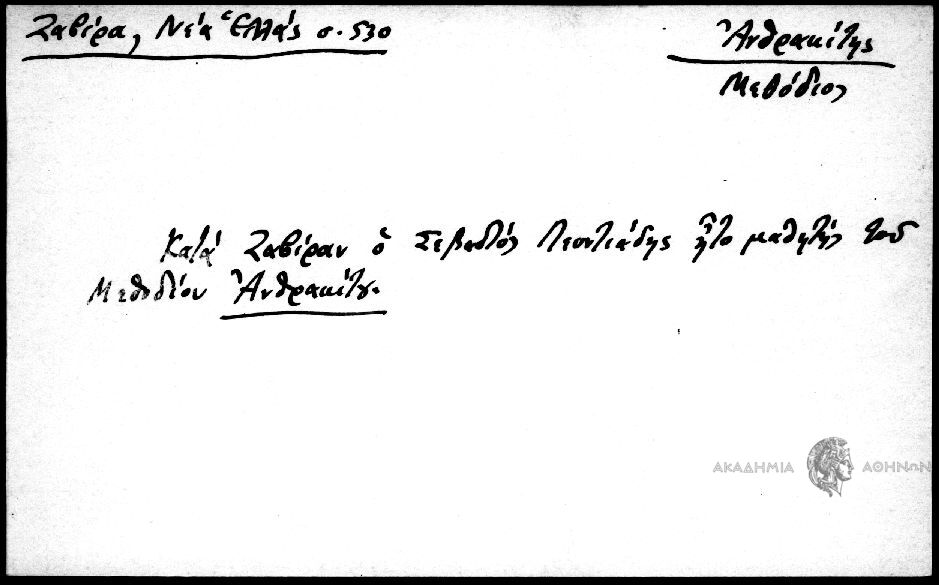 Ζαβίρα, Νέα Ἑλλάς σ. 530
Ἀνθρακίτης
Μεθόδιος
Κατά Ζαβίραν ὁ Σεβαστός Λεοντιάδης ἦτο μαθητής τοῦ
Μεθοδίου Ἀνθρακίτου.
ΑΚΑΔΗΜΙΑ ΑΘΗΝΩΝ